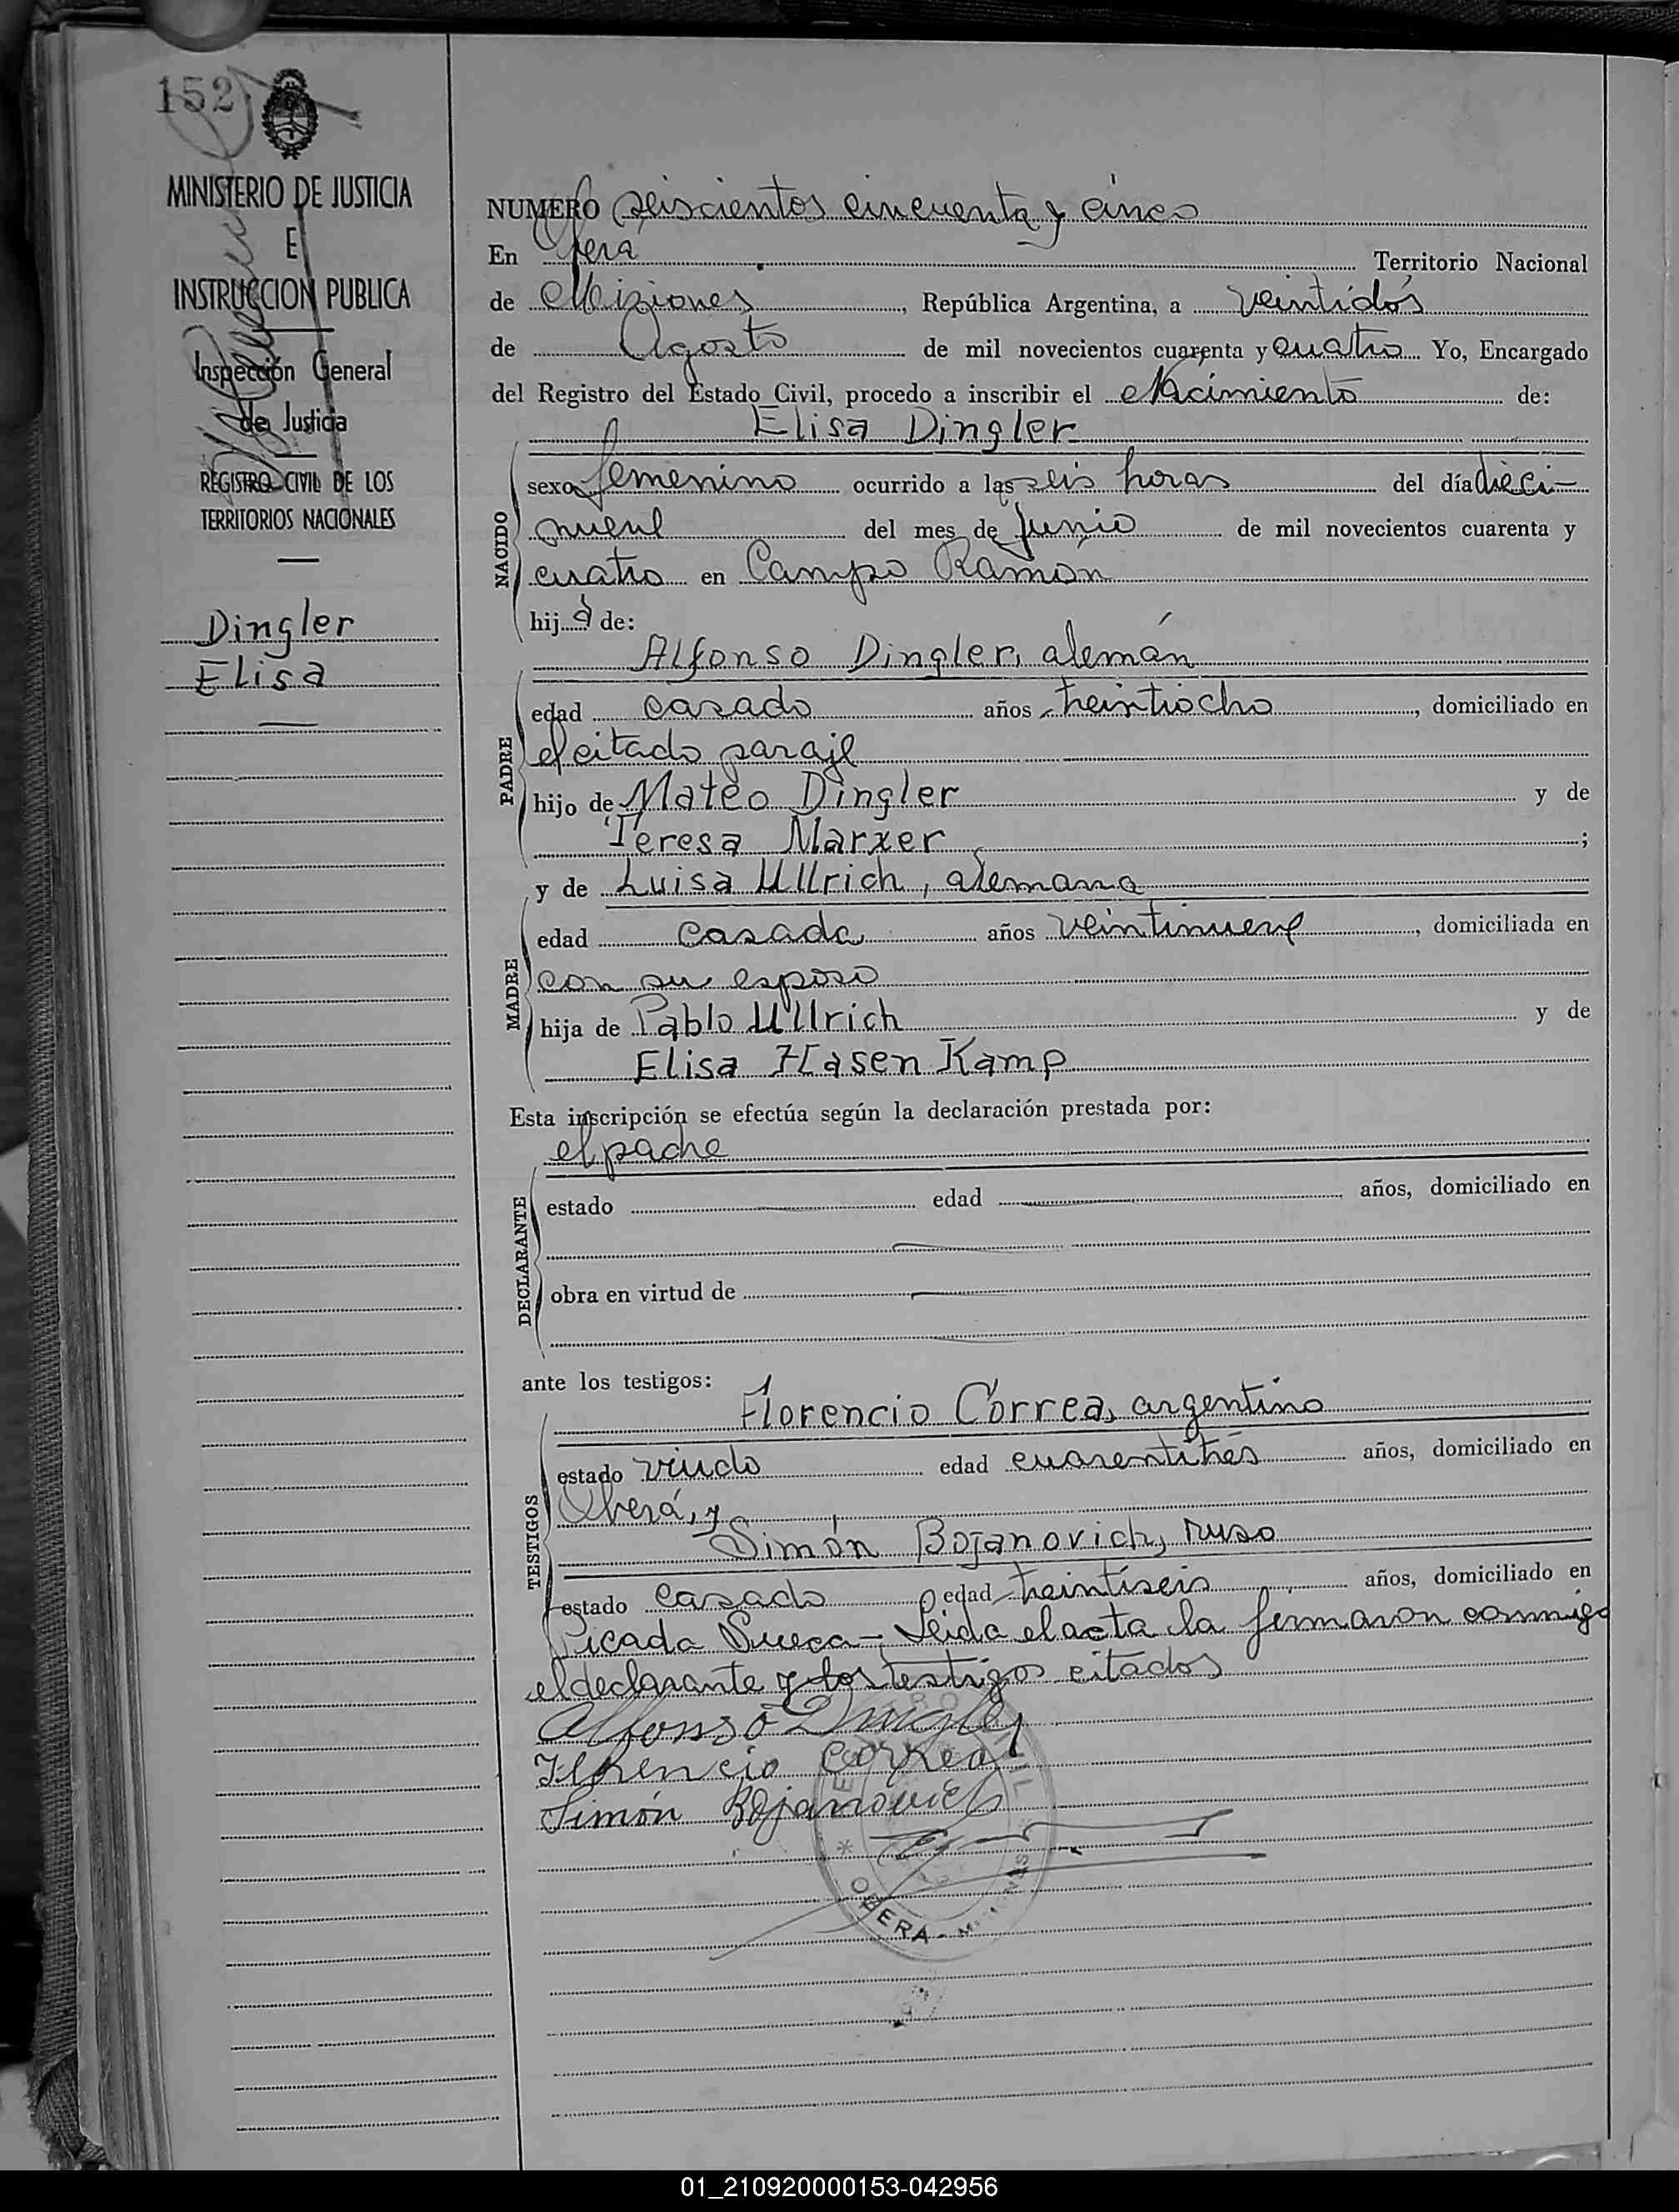 152
MINISTERIO DE JUSTICIA
E
INSTRUCCION PUBLICA
Inspección General
de Justicia
REGISTRO CIVIL DE LOS
TERRITORIOS NACIONALES
Dingler
Elisa
NUMERO Seiscientos cincuenta y cinco
En Oberá Territorio Nacional
de Misiones, República Argentina, a veintidós
de Agosto de mil novecientos cuarenta y cuatro Yo, Encargado
del Registro del Estado Civil, procedo a inscribir el Nacimiento de:
Elisa Dingler
NACIDO
sexo femenino ocurrido a las seis horas del día dieci-
nueve del mes de Junio de mil novecientos cuarenta y
cuatro en Campo Ramón
hija de:
Alfonso Dingler, alemán
PADRE
edad casado años treintiocho, domiciliado en
el citado paraje
hijo de Mateo Dingler y de
Teresa Marxer;
y de Luisa Ullrich, alemana
MADRE
edad casada años veintinueve, domiciliada en
con su esposo
hija de Pablo Ullrich y de
Elisa Hasen Kamp
Esta inscripción se efectúa según la declaración prestada por:
el padre
DECLARANTE
estado edad años, domiciliado en
obra en virtud de
ante los testigos:
Florencio Correa, argentino
TESTIGOS
estado viudo edad cuarentitrés años, domiciliado en
Oberá, y
Simón Bojanovich, ruso
estado casado edad treintiseis años, domiciliado en
Picada Sueca - Leida el acta la firmaron conmigo
el declarante y los testigos citados
Alfonso Dingler
Florencio Correa
Simón Bojanovich
OBERA - MISIONES
01_210920000153-042956